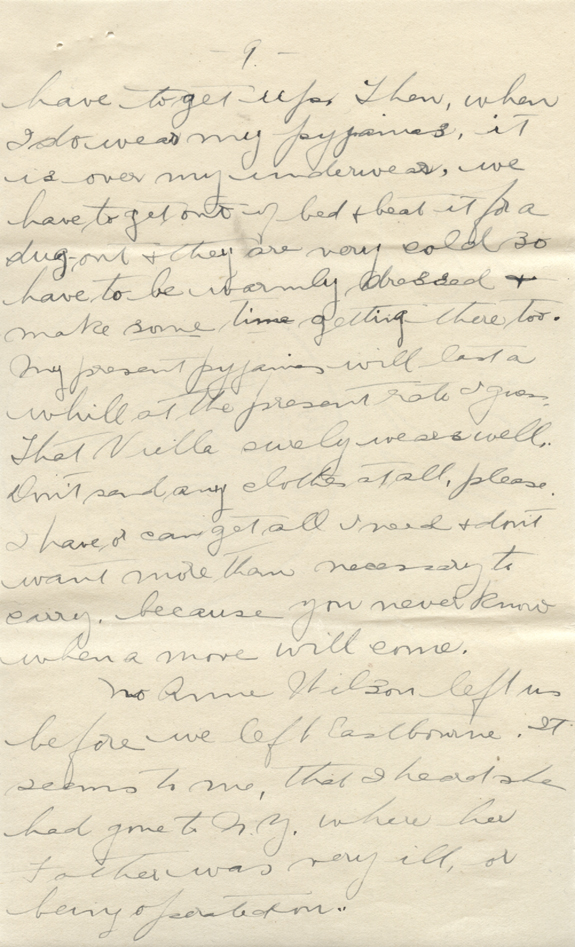 - 9. -
have to get up. Then, when
I do wear my pyjamas, it
is over my underwear, we
have to get out of bed & beat it for a
dug-out & they are very cold so
have to be warmly dressed &
make some time getting there too.
My present pyjamas will last a
whill at the present rate I guess.
That Viella surely wears well.
Don't send any clothes at all, please.
I have or can get all I need & don't
want more than necessary to
carry. because you never know
when a move will come.
No Anne Wilson left us
before we left Eastbourne. It
seems to me, that I heard she
had gone to N.Y. where her
Father was very ill, or
being operated on.